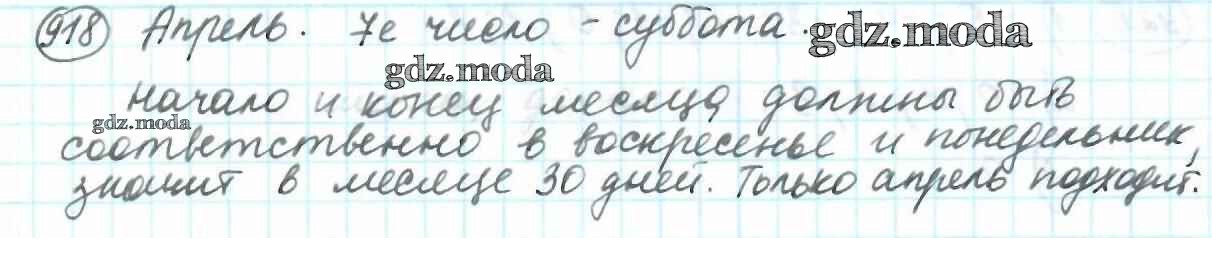 918 Апрель. 7е число - суббота. gdz.moda
gdz.moda
Начало и конец месяца должны быть
gdz.moda
соответственно в воскресенье и понедельник,
значит в месяце 30 дней. Только апрель подходит.